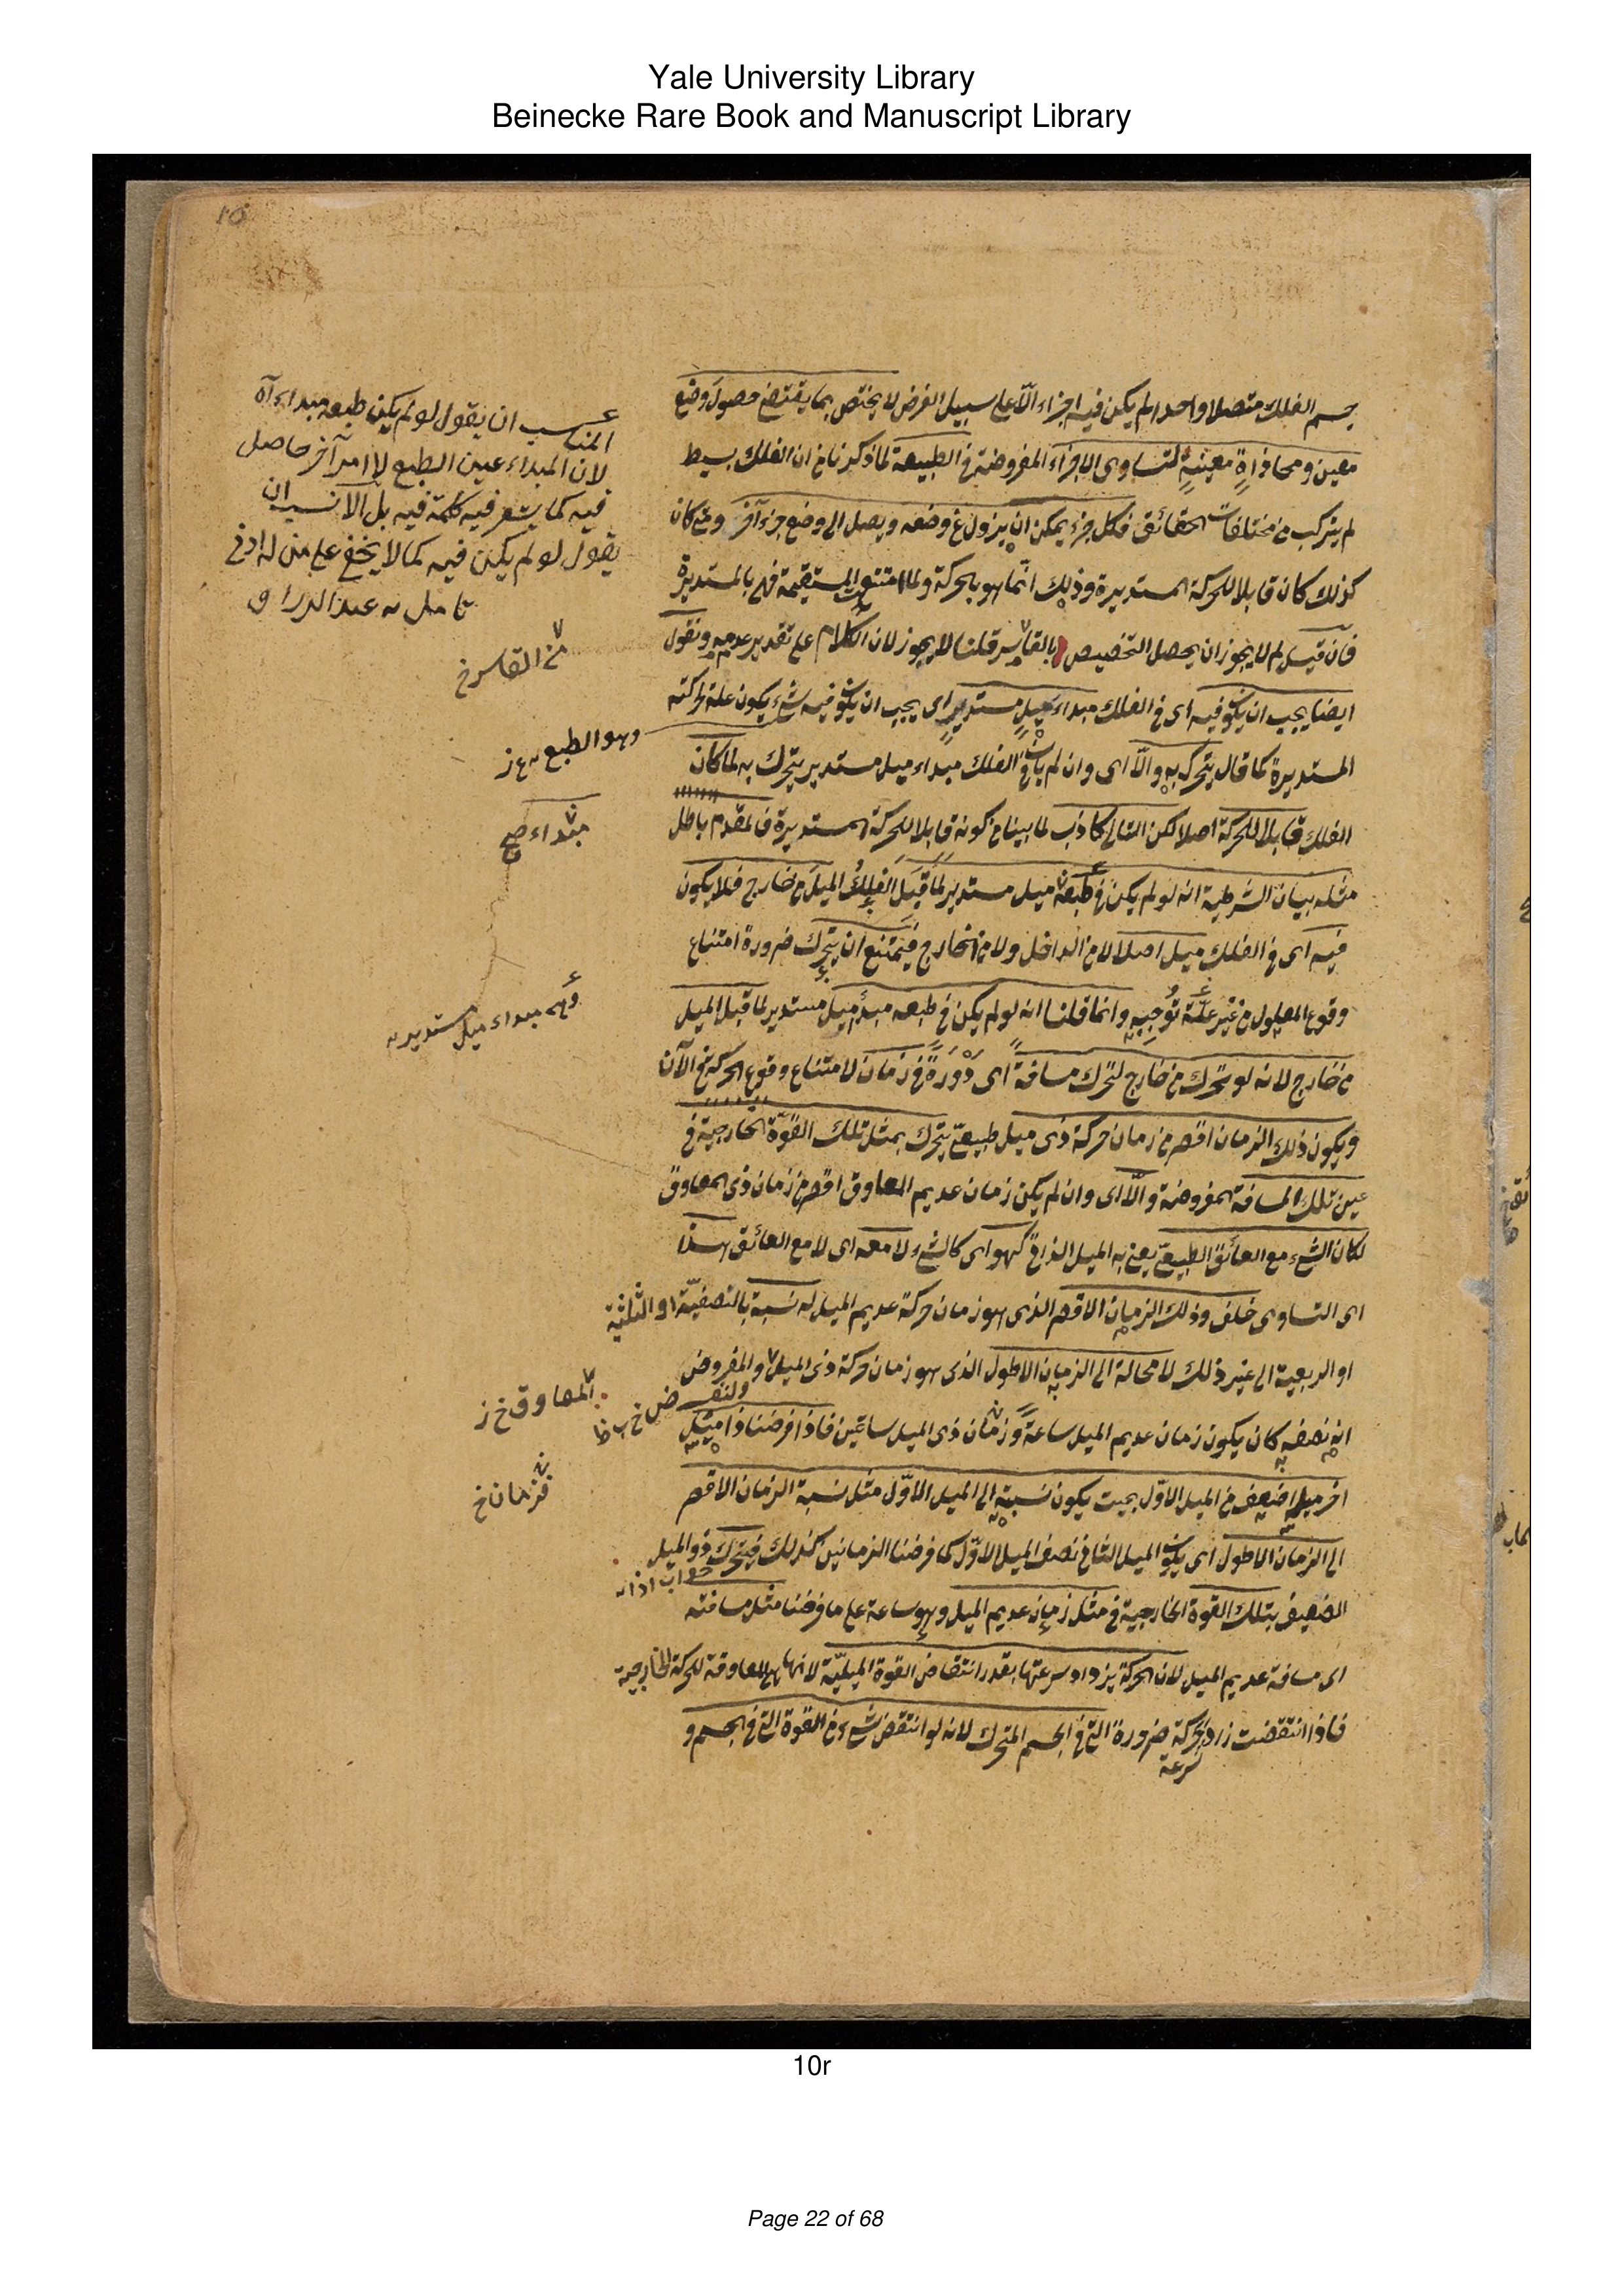 Yale University Library
Beinecke Rare Book and Manuscript Library
10
جسم الفلك متصلا واحدا لم يكن فيه اجزاء الّا على سبيل الفرض لا يختص بما يقتضى حصول وضع
معين ومحاذاةٍ معينةٍ لتساوى الاجزاء المفروضة فى الطبيعة لما ذكرنا من ان الفلك بسيط
لم يتركب من مختلفات الحقائق فكل جزء يمكن ان يزول عن وضعه ويصل الى وضع جزء آخر ومتى كان
كذلك كان قابلا للحركة المستديرة وذلك انّما هو بالحركة ولما امتنع المستقيمة فهى بالمستديرة
فان قيل لم لا يجوز ان يحصل التخصيص بالقاسر قلنا لا يجوز لان الكلام على تقدير عدمه ونقول
ايضا يجب ان يكون فيه اى فى الفلك مبداء ميلٍ مستديرٍ اى يجب ان يكون فيه شىء يكون علة لحركته
المستديرة كما قال يتحرك به والّا اى وان لم يكن فى الفلك مبداء ميل مستدير يتحرك به لما كان
الفلك قابلا للحركة اصلا لكن التالى كاذب لما بينا من كونه قابلا للحركة المستديرة فالمقدم باطل
مثله بيان الشرطية انه لو لم يكن فى طبعه ميل مستدير لَمَا قَبِلَ الفلكُ الميلَ من خارج فلا يكون
فيه اى فى الفلك ميل اصلا لا من الداخل ولا من الخارج فيمتنع ان يتحرك ضرورة امتناع
وقوع المعلول من غير علّة تُوجِبه وانما قلنا انه لو لم يكن فى طبعه مبدأ ميل مستدير لما قبل الميل
من خارج لانه لو تحرك من خارج لتحرك مسافةً اى دَوْرَةً فى زمان لامتناع وقوع الحركة فى الآن
ويكون ذلك الزمان اقصر من زمان حركة ذى ميل طبيعىّ يتحرك بمثل تلك القوّة الخارجية فى
عين تلك المسافة المفروضة والّا اى وان لم يكن زمان عديم المعاوق اقصر من زمان ذى المعاوق
لكان الشىء مع العائق الطبيعىّ يعنى به الميل الذاتى كهو اى كالشىء لا معه اى لا مع العائق هذا
اى التساوى خلف وذلك الزمان الاقصر الذى هو زمان حركة عديم الميل له نسبة بالنصفيّة او الثلثية
او الربعية الى غير ذلك لا محالة الى الزمان الاطول الذى هو زمان حركة ذى الميل والمفروض
انه نصفه كان يكون زمان عديم الميل ساعةً وزمان ذى الميل ساعتين فاذا فرضنا ذا ميل
اخر ميله اضعف من الميل الاوّل بحيث يكون نسبته الى الميل الاوّل مثل نسبة الزمان الاقصر
الى الزمان الاطول اى يكون الميل الثانى نصف الميل الاوّل كما فرضنا الزمانين كذلك فيتحرك ذو الميل
الضعيف بتلك القوة الخارجية فى مثل زمان عديم الميل وهو ساعة على ما فرضنا مثل مسافته
اى مسافة عديم الميل لان الحركة يزداد سرعتها بقدر انتقاص القوة الميليّة لانها هى المعاوقة للحركة الخارجية
فاذا انتقضت زاد الحركة ضرورة التى فى الجسم المتحرك لانه لو انتقض شىء من القوة التى فى الجسم و
سرعة
المناسب ان يقول لو لم يكن طبعه مبداء آه
لان المبداء عين الطبع لا امر آخر حاصل
فيه كما يشعر فيه كلمة فيه بل الانسب ان
يقول لو لم يكن فيه كما لا يخفى على من له ادنى
تامل
من القاسر خ
وهو الطبع
مبداء صح
مبداء ميل مستدير
ولنفرض خ
المعاوق خ ز
فزمان خ
جواب اذا
10r
Page 22 of 68